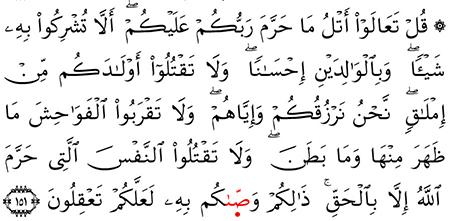 ۞ قُلْ تَعَالَوْا۟ أَتْلُ مَا حَرَّمَ رَبُّكُمْ عَلَيْكُمْ ۖ أَلَّا تُشْرِكُوا۟ بِهِۦ
شَيْـًٔا ۖ وَبِٱلْوَٰلِدَيْنِ إِحْسَـٰنًا ۖ وَلَا تَقْتُلُوٓا۟ أَوْلَـٰدَكُم مِّنْ
إِمْلَـٰقٍ ۖ نَّحْنُ نَرْزُقُكُمْ وَإِيَّاهُمْ ۖ وَلَا تَقْرَبُوا۟ ٱلْفَوَٰحِشَ مَا
ظَهَرَ مِنْهَا وَمَا بَطَنَ ۖ وَلَا تَقْتُلُوا۟ ٱلنَّفْسَ ٱلَّتِى حَرَّمَ
ٱللَّهُ إِلَّا بِٱلْحَقِّ ۚ ذَٰلِكُمْ وَصَّىٰكُم بِهِۦ لَعَلَّكُمْ تَعْقِلُونَ ١٥١